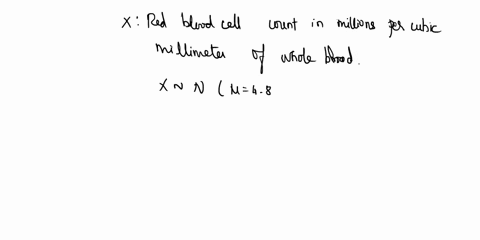 X : Red blood cell count in millions per cubic
millimeter of whole blood.
X ~ N ( μ = 4.8